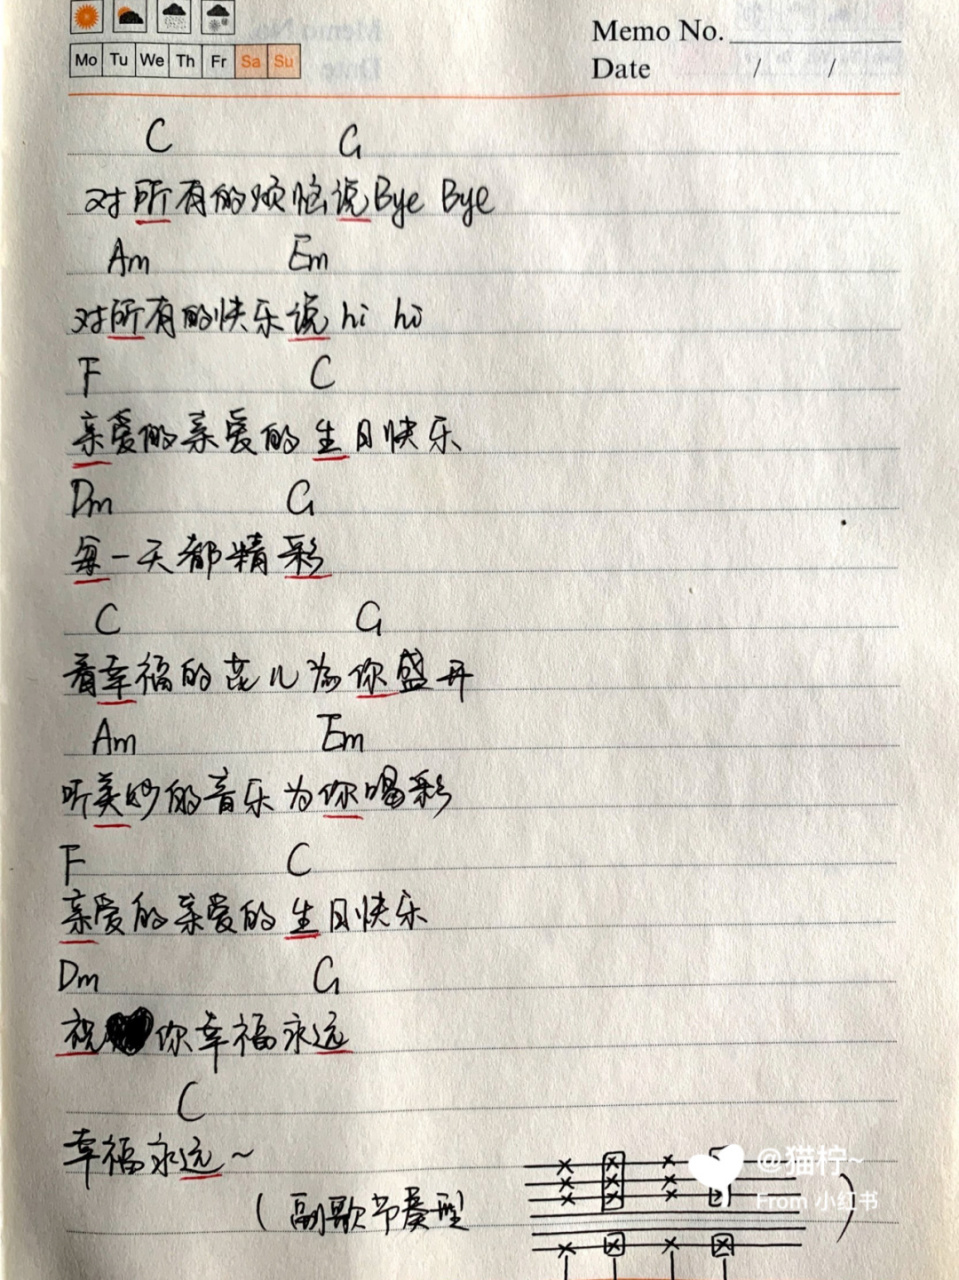 Mo Tu We Th Fr Sa Su
Memo No.
Date / /
C G
对所有的烦恼说Bye Bye
Am Em
对所有的快乐说 hi hi
F C
亲爱的亲爱的生日快乐
Dm G
每一天都精彩
C G
看幸福的花儿为你盛开
Am Em
听美妙的音乐为你喝彩
F C
亲爱的亲爱的生日快乐
Dm G
祝你幸福永远
C
幸福永远~
(副歌节奏型 )
@猫柠~
From 小红书